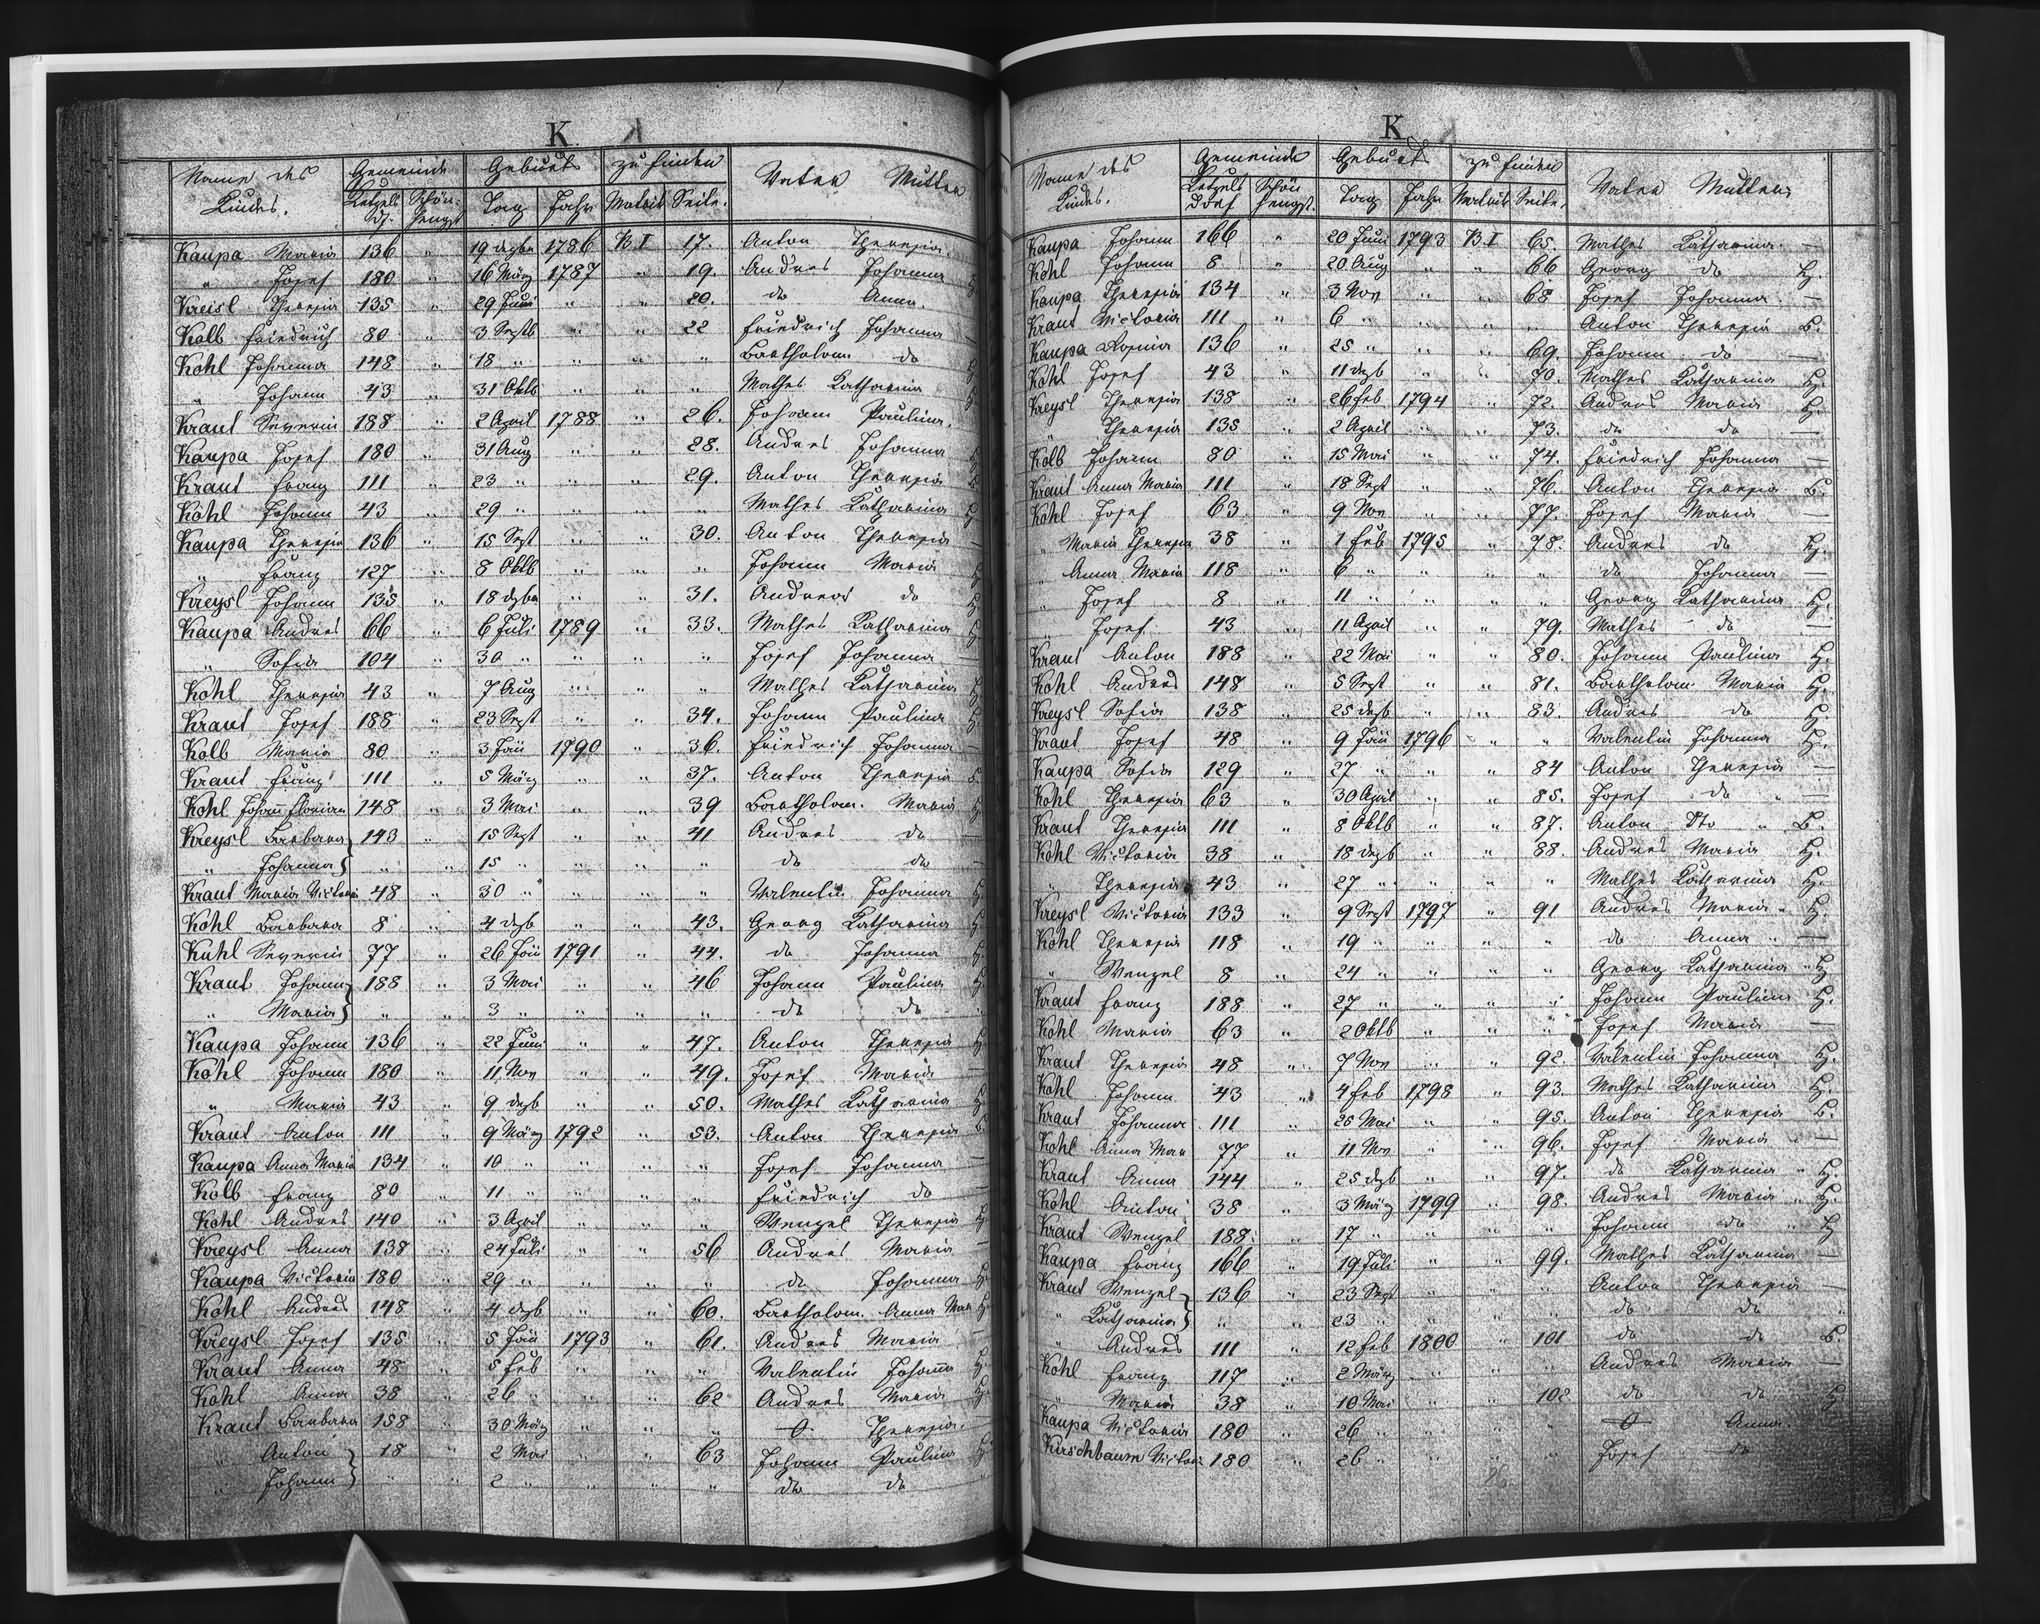 K.
Name des Kindes. Gemeinde Geburts zu finden Vater Mutter
Ketzelsd. Schönhengst Tag Jahr Matrik Seite.
Kaupa Maria 136 " 19 dezbr 1786 B.I 17. Anton Theresia
" Josef 180 " 16 März 1787 " 19. Andres Johanna
Kreisl Theresia 135 " 29 Juni " " 20. do Anna
Kolb Friedrich 80 " 3 Septb " " 22 Friedrich Johanna —
Kohl Johanna 148 " 18 " " " " Bartholom do
" Johann 43 " 31 Oktb " " " Mathes Katharina
Kraut Severin 188 " 2 April 1788 " 26. Johann Paulina.
Kaupa Josef 180 " 31 Aug " " 28. Andres Johanna
Kraut Franz 111 " 23 " " " 29. Anton Theresia
Kohl Johann 43 " 29 " " " " Mathes Katharina
Kaupa Theresia 136 " 15 Sept " " 30. Anton Theresia —
" Franz 127 " 8 Oktb " " " Johann Maria
Kreysl Johann 135 " 18 dezbr " " 31. Andreas do
Kaupa Andres 66 " 6 Juli 1789 " 33. Mathes Katharina
" Sofia 104 " 30 " " " " Josef Johanna —
Kohl Theresia 43 " 7 Aug " " " Mathes Katharina
Kraut Josef 188 " 23 Sept " " 34. Johann Paulina
Kolb Maria 80 " 3 Jän 1790 " 36. Friedrich Johanna —
Kraut Franz 111 " 5 März " " 37. Anton Theresia
Kohl Johan Florian 148 " 3 Mai " " 39 Bartholom. Maria
Kreysl Barbara } 143 " 15 Sept " " 41 Andres do —
" Johanna } " " 15 " " " " do do —
Kraut Maria Victoria 48 " 30 " " " " Valentin Johanna H.
Kohl Barbara 8 " 4 dezb " " 43. Georg Katharina H.
Kuhl Severin 77 " 26 Jän 1791 " 44. do Johanna H.
Kraut Johann } 188 " 3 Mai " " 46 Johann Paulina H.
" Maria } " " 3 " " " " do do "
Kaupa Johann 136 " 22 Juni " " 47. Anton Theresia
Kohl Johann 180 " 11 Nov " " 49. Josef Maria —
" Maria 43 " 9 dezb " " 50. Mathes Katharina
Kraut Anton 111 " 9 März 1792 " 53. Anton Theresia
Kaupa Anna Maria 134 " 10 " " " " Josef Johanna —
Kolb Franz 80 " 11 " " " " Friedrich do —
Kohl Andres 140 " 3 April " " " Wenzel Theresia H.
Kreysl Anna 138 " 24 Juli " " 56 Andres Maria —
Kaupa Victoria 180 " 29 " " " " do Johanna H.
Kohl Andres 148 " 4 dezb " " 60. Bartholom. Anna Mar H.
Kreysl Josef 135 " 5 Jän 1793 " 61. Andres Maria —
Kraut Anna 48 " 5 Feb " " " Valentin Johanna H.
Kohl Anna 38 " 26 " " " 62 Andres Maria H.
Kraut Barbara 158 " 30 März " " " -0- Theresia.
" Anton } 18 " 2 Mai " " 63 Johann Paulina H.
" Johann } " " 2 " " " " do do
K
Name des Kindes. Gemeinde Geburts zu finden Vater Mutter
Ketzelsdorf Schönhengst. Tag Jahr Matrik Seite.
Kaupa Johann 166 " 20 Juni 1793 B.I 65. Mathes Katharina. —
Kohl Johann 8 " 20 Aug " " 66 Georg do H.
Kaupa Theresia 134 " 3 Nov " " 68 Josef Johanna —
Kraut Victoria 111 " 6 " " " " Anton Theresia B.
Kaupa Rosina 136 " 25 " " " 69. Johann do —
Kohl Josef 43 " 11 dezb " " 70. Mathes Katharina H.
Kreysl Theresia 138 " 26 Feb 1794 " 72. Andres Maria H.
" Theresia 135 " 2 April " " 73. do do —
Kolb Johann 80 " 15 Mai " " 74. Friedrich Johanna —
Kraut Anna Maria 111 " 18 Sept " " 76. Anton Theresia B.
Kohl Josef 63 " 9 Nov " " 77. Josef Maria —
" Maria Theresia 38 " 1 Feb 1795 " 78. Andres do H.
" Anna Maria 118 " 6 " " " " do Johanna —
" Josef 8 " 11 " " " " Georg Katharina H.
" Josef 43 " 11 April " " 79. Mathes do —
Kraut Anton 188 " 22 Mai " " 80. Johann Paulina H.
Kohl Andres 148 " 5 Sept " " 81. Bartholom. Maria H.
Kreysl Sofia 138 " 25 dezb " " 83. Andres do H.
Kraut Josef 48 " 9 Jän 1796 " " Valentin Johanna H.
Kaupa Sofia 129 " 27 " " " 84 Anton Theresia —
Kohl Theresia 63 " 30 April " " 85. Josef do —
Kraut Theresia 111 " 8 Oktb " " 87. Anton Dto " B.
Kohl Victoria 38 " 18 dezb " " 88. Andres Maria H.
" Theresia 43 " 27 " " " " Mathes Katharina H.
Kreysl Victoria 133 " 9 Sept 1797 " 91 Andres Maria H.
Kohl Theresia 118 " 19 " " " " do Anna —
" Wenzel 8 " 24 " " " " Georg Katharina H.
Kraut Franz 188 " 27 " " " " Johann Paulina H.
Kohl Maria 63 " 2 Oktb " " " Josef Maria —
Kraut Theresia 48 " 7 Nov " " 92. Valentin Johanna H.
Kohl Johann 43 " 4 Feb 1798 " 93. Mathes Katharina H.
Kraut Johanna 111 " 26 Mai " " 95. Anton Theresia B.
Kohl Anna Mar 77 " 11 Nov " " 96. Josef Maria —
Kraut Anna 144 " 25 dezb " " 97. do Katharina H.
Kohl Anton 38 " 3 März 1799 " 98. Andres Maria H.
Kraut Wenzel 188. " 17 " " " " Johann do " H
Kaupa Franz 166 " 19 Juli " " 99. Mathes Katharina —
Kraut Wenzel } 136 " 23 Sept " " " Anton Theresia —
" Katharina } " " 23 " " " " do do "
" Andres 111 " 12 Feb 1800 " 101 do do B
Kohl Franz 117 " 2 März " " " Andres Maria —
" Maria 38 " 10 Mai " " 102 do do H
Kaupa Victoria 180 " 26 " " " " -0- Anna. —
Kirschbaum Victori 180 " 26 " " " " Josef do